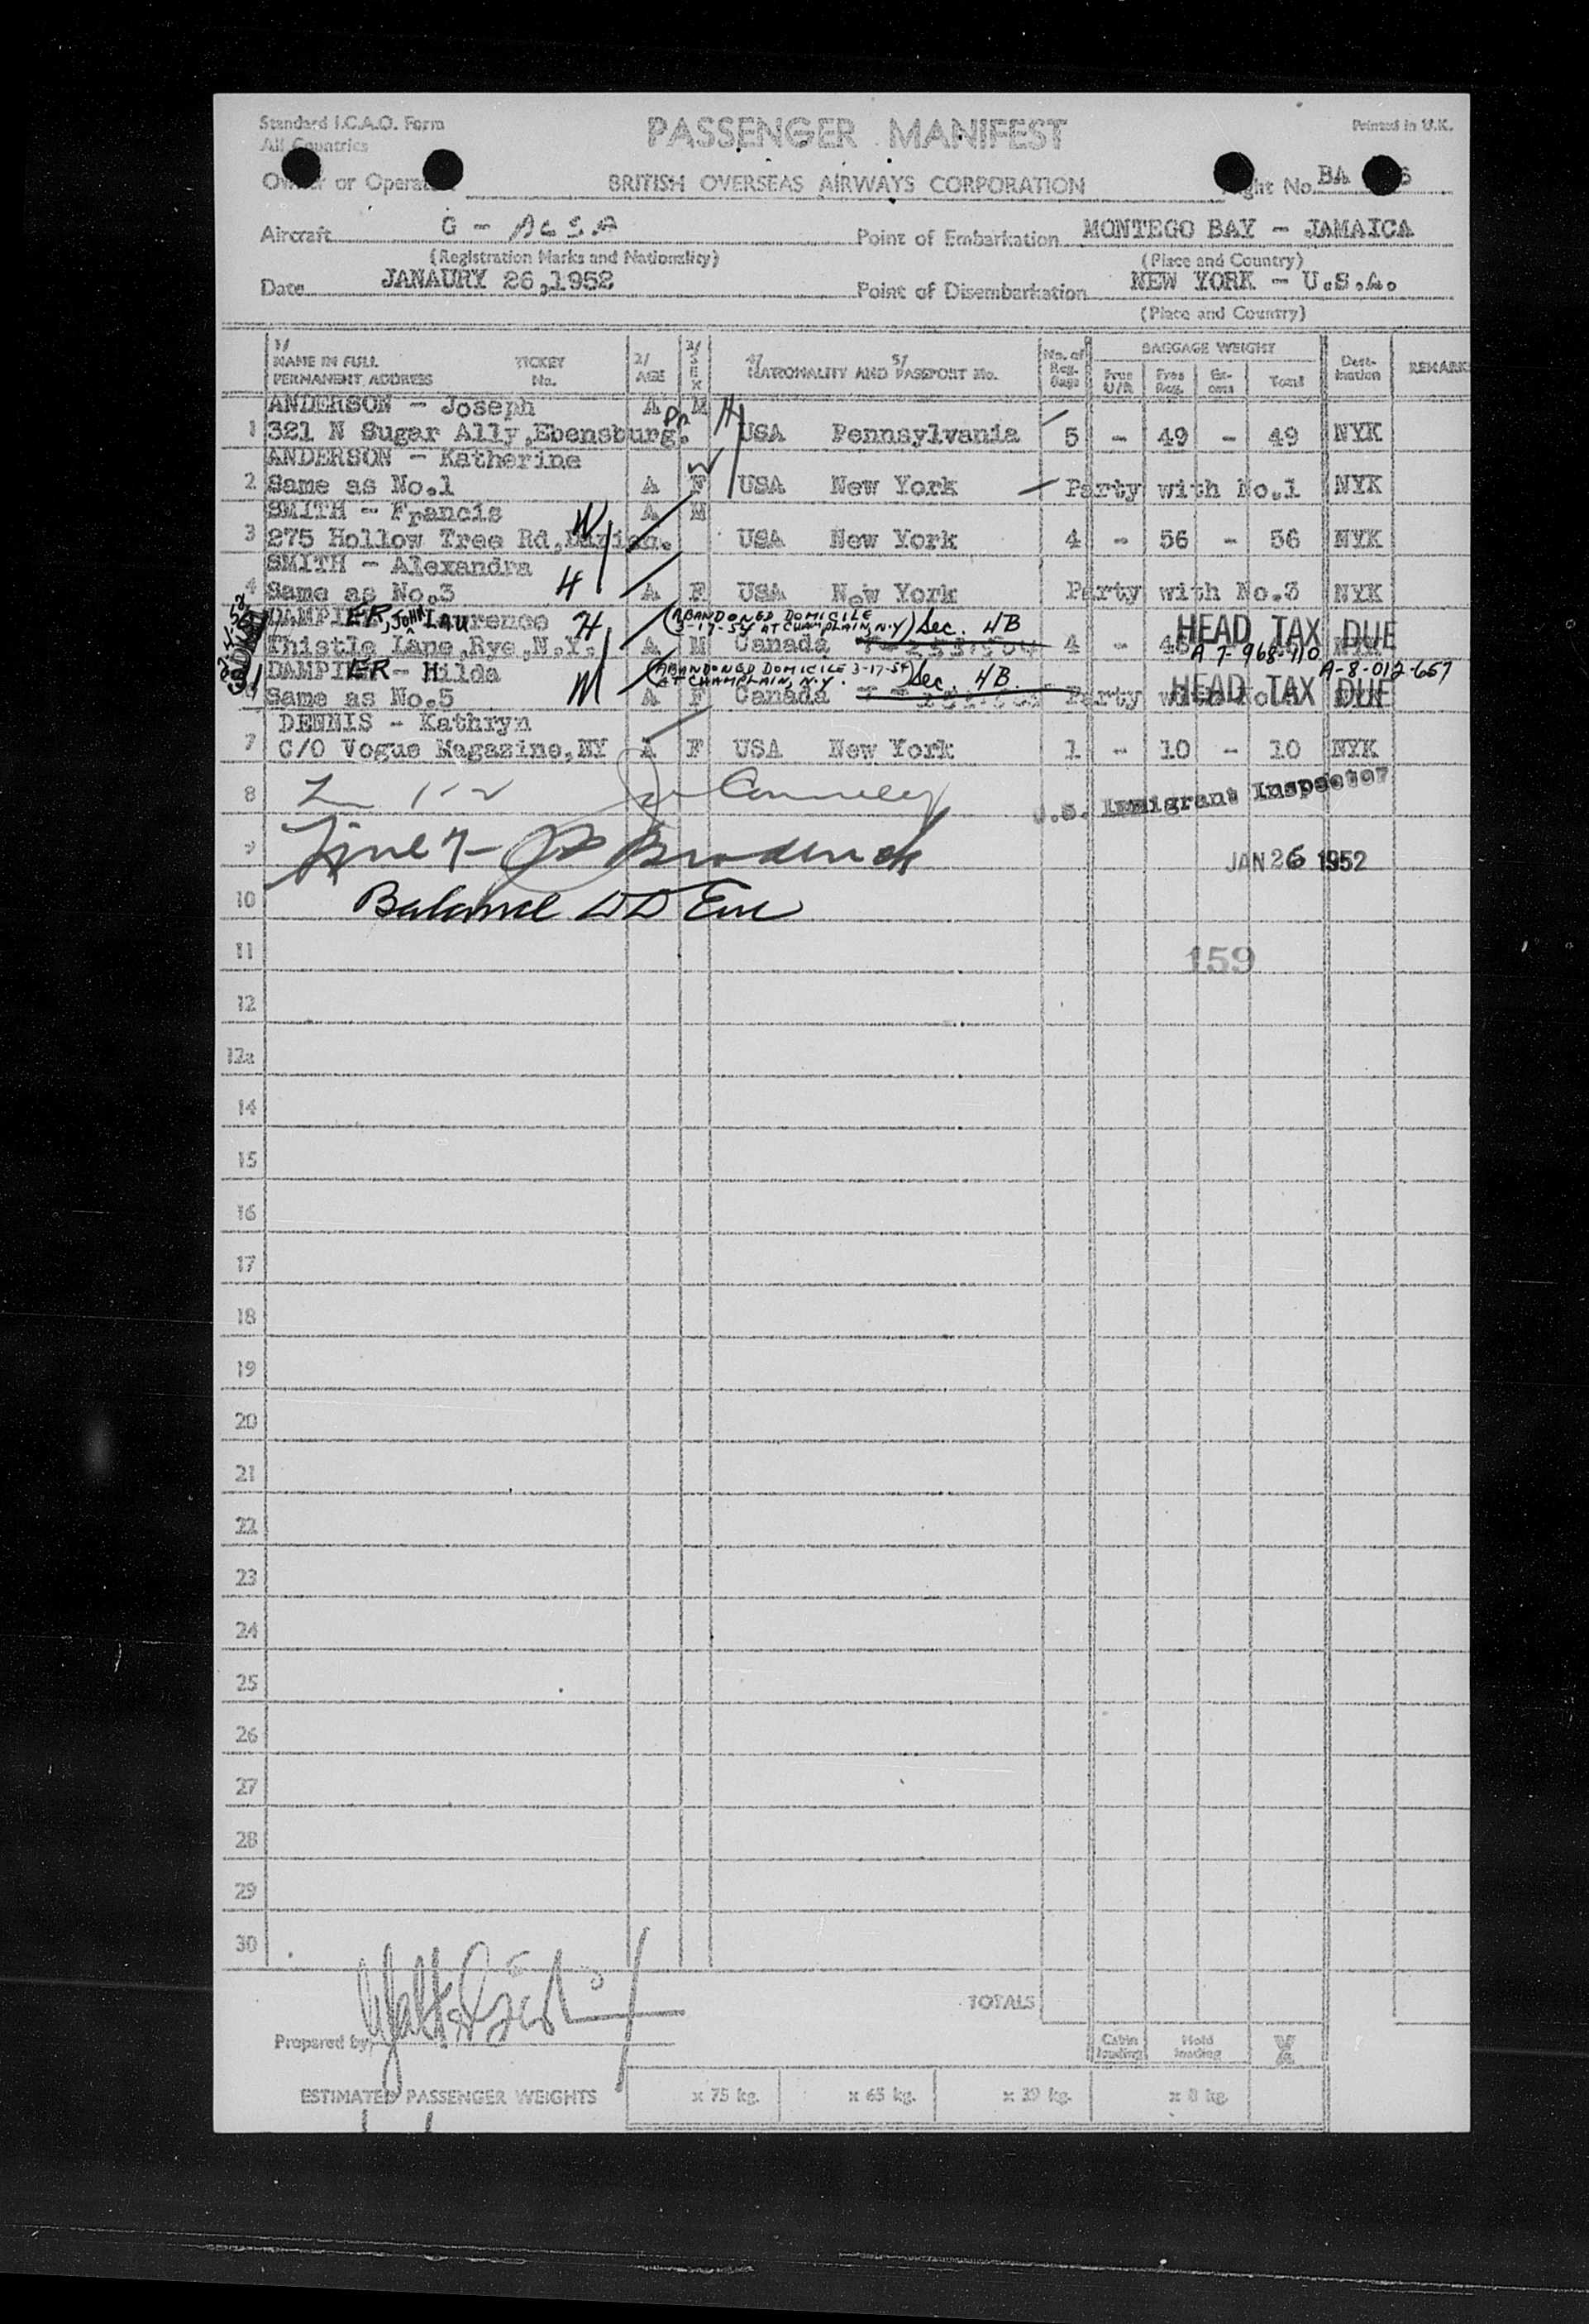 Standard I.C.A.O. Form
All Countries
PASSENGER MANIFEST
Printed in U.K.
Owner or Operator BRITISH OVERSEAS AIRWAYS CORPORATION Flight No. BA 6
Aircraft G - Point of Embarkation MONTEGO BAY - JAMAICA
(Registration Marks and Nationality) (Place and Country)
Date JANAURY 26,1952 Point of Disembarkation NEW YORK - U.S.A.
(Place and Country)
1/ NAME IN FULL TICKET No. 2/ AGE 3/ SEX 4/ 5/ NATIONALITY AND PASSPORT No. No. of Reg. Bags BAGGAGE WEIGHT Dest-ination REMARKS
PERMANENT ADDRESS Free U/R Free Reg. Ex-cess Total
ANDERSON - Joseph A M H
1 321 N Sugar Ally,Ebensburg. Pa USA Pennsylvania 5 - 49 - 49 NYK
ANDERSON - Katherine W
2 Same as No.1 A F USA New York Party with No.1 NYK
SMITH - Francis W A M
3 275 Hollow Tree Rd,Darien. USA New York 4 - 56 - 56 NYK
SMITH - Alexandra
4 Same as No.3 H A F USA New York Party with No.3 NYK
DAMPIER, JOHN LAurence H (ABANDONED DOMICILE 3-17-54 AT CHAMPLAIN, N.Y) Sec. 4B HEAD TAX DUE
Thistle Lane,Rye,N.Y. A M Canada 4 - A7-968-710
DAMPIER - Hilda (ABANDONED DOMICILE 3-17-54 AT CHAMPLAIN, N.Y.) Sec. 4B A-8-012-657
Same as No.5 M A F Canada Party HEAD TAX DUE
DENNIS - Kathryn
7 C/O Vogue Magazine,NY A F USA New York 1 - 10 - 10 NYK
8 1-2 Connelly U.S. Immigrant Inspector
9 Line 7- Broderick JAN 26 1952
10 Balance
11 159
12
12a
14
15
16
17
18
19
20
21
22
23
24
25
26
27
28
29
30
TOTALS
Prepared by Cabin loading Hold loading
ESTIMATED PASSENGER WEIGHTS x 75 kg. x 65 kg. x 39 kg. x 8 kg.